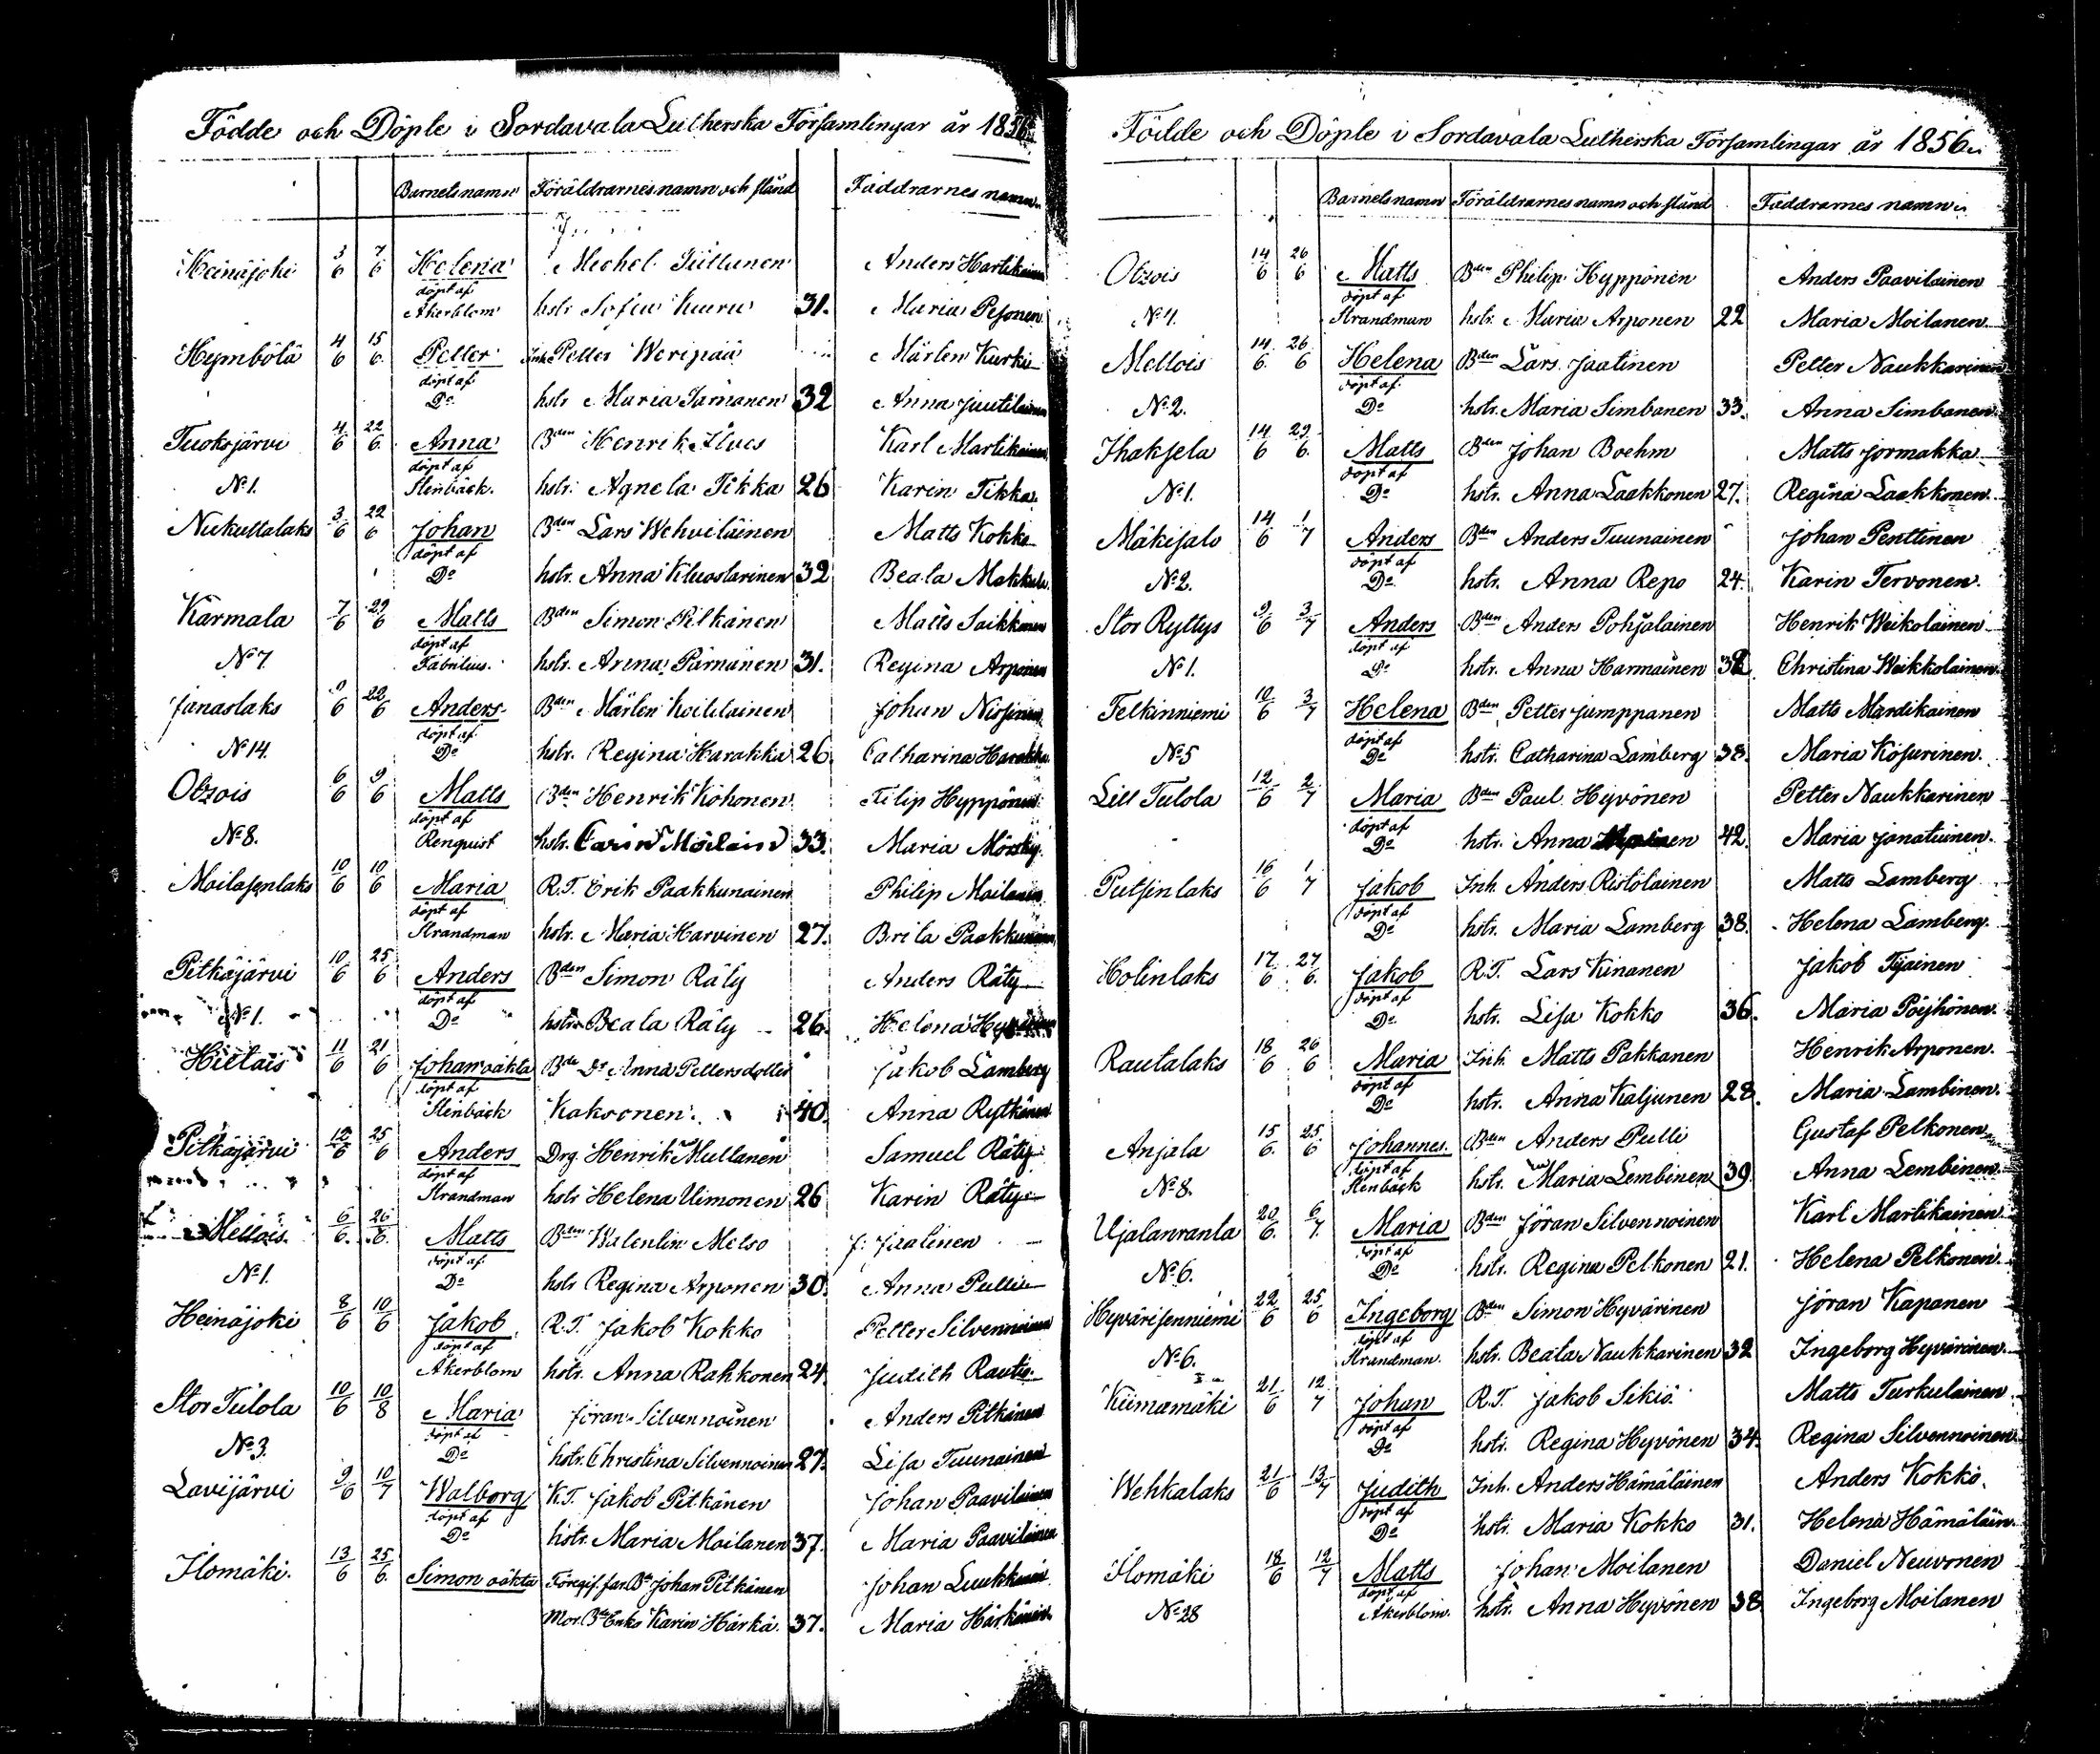 Födde och Döpte i Sordavala Lutherska Församlingar år 1856.
Barnets namn Föräldrarnes namn och stånd Faddrarnes namn
Heinäjoki 3/6 7/6 Helena Michel Anders Hartikainen
döpt af
Åkerblom hstr Sofia Kuuru 31. Maria Pesonen
Hymbölä 4/6 15/6 Petter Inh. Petter Weripää Mårten Kurki
döpt af
Do hstr Maria 32 Anna Juutilainen
Tuoksjärvi 4/6 22/6 Anna Bden Henrik Ilves Karl Martikainen
döpt af
No 1. Stenbäck. hstr. Agneta Tikka 26 Karin Tikka
Nukuttalaks 3/6 22/6 Johan Bden Lars Wehviläinen Matts Kokko
döpt af
Do hstr. Anna Kluostarinen 32 Beata
Karmala 7/6 22/6 Matts Bden Simon Pitkänen Matts Saikkonen
döpt af
No 7 Fabritius. hstr. Anna Pärnänen 31. Regina Arponen
Janaslaks 9/6 22/6 Anders Bden Mårten Koitilainen Johan Nissinen
döpt af
No 14. Do hstr. Regina Harakka 26. Catharina Harakka
Otzois 6/6 9/6 Matts Bden Henrik Köhonen Filip Hyppönen
döpt af
No 8. Renquist hstr. Carin 33. Maria
Moilasenlaks 10/6 10/6 Maria R.T. Erik Paakkunainen Philip Moilanen
döpt af
Strandman hstr. Maria Harvinen 27. Brita Paakkunainen
Pitkäjärvi 10/6 25/6 Anders Bden Simon Räty Anders Räty
döpt af
No 1. Do hstr. Beata Räty 26. Helena
Hietais 11/6 21/6 Johan oäkta Bde Dr Anna Pettersdotter Jakob Lamberg
döpt af
Stenbäck Kaksonen 40. Anna Rytkönen
Pitkäjärvi 12/6 25/6 Anders Drg. Henrik Mullanen Samuel Räty
döpt af
Strandman hstr Helena Uimonen 26 Karin Räty
Mellois 6/6. 26/6. Matts Bden Walentin Metso J. Jaatinen
döpt af
No 1. Do hstr Regina Arponen 30. Anna Pulli
Heinäjoki 8/6 10/6 Jakob R.T. Jakob Kokko Petter Silvennoinen
döpt af
Åkerblom hstr. Anna Rahkonen 24. Judith Rautio
Stor Tulola 10/6 10/8 Maria Jöran Silvennoinen Anders Pitkänen
döpt af
No 3. Do hstr. Christina Silvennoinen 27. Lisa Tuunainen
Lavijärvi 9/6 10/7 Walborg K.T. Jakob Pitkänen Johan Paavilainen
döpt af
Do hstr. Maria Moilanen 37. Maria Paavilainen
Ilomäki. 13/6 25/6. Simon oäkta Föregif. far Bdn Johan Pitkänen Johan Luukkainen
Mor. Bde Enka Karin Härkä. 37. Maria Härkönen
Födde och Döpte i Sordavala Lutherska Församlingar år 1856.
Barnets namn Föräldrarnes namn och stånd Faddrarnes namn
Otzois 14/6 26/6 Matts Bden Philip Hyppönen Anders Paavilainen
döpt af
No 4. Strandman hstr. Maria Arponen 22 Maria Moilanen
Mellois 14/6. 26/6 Helena Bden Lars Jaatinen Petter Naukkarinen
döpt af
No 2. Do hstr. Maria Simbanen 33. Anna Simbanen
Ihaksela 14/6 29/6. Matts Bden Johan Boehm Matts Jormakka
döpt af
No 1. Do hstr. Anna Laakkonen 27. Regina Laakkonen
Mäkisalo 14/6 1/7 Anders Bden Anders Tuunainen Johan Penttinen
döpt af
No 2. Do hstr. Anna Repo 24. Karin Tervonen.
Stor Ryttys 9/6 3/7 Anders Bden Anders Pohjalainen Henrik Weikolainen
döpt af
No 1. Do hstr. Anna Harmainen 32 Christina Weikkolainen
Telkinniemi 10/6 3/7 Helena Bden Petter Jumppanen Matts Mardikainen
döpt af
No 5 Do hstr. Catharina Lamberg 38. Maria Kosurinen.
Lill Tulola 12/6 2/7 Maria Bden Paul Hyvönen Petter Naukkarinen
döpt af
Do hstr. Anna 42. Maria Janatuinen.
Putsinlaks 16/6 1/7 Jakob Inh. Anders Ristolainen Matts Lamberg
döpt af
Do hstr. Maria Lamberg 38. Helena Lamberg.
Kolinlaks 17/6 27/6. Jakob R.T. Lars Kinanen Jakob Tijainen
döpt af
Do hstr. Lisa Kokko 36. Maria Pöyhönen.
Rautalaks 18/6 26/6 Maria Inh. Matts Pakkanen Henrik Arponen.
döpt af
Do hstr. Anna Kaljunen 28. Maria Lambinen.
Anjala 15/6. 25/6 Johannes. Bden Anders Pulli Gustaf Pelkonen
döpt af
No 8. Stenbäck hstr. Maria Lembinen 39. Anna Lembinen
Ujalanranta 20/6. 6/7. Maria Bden Jöran Silvennoinen Karl Martikainen
döpt af
No 6. Do hstr. Regina Pelkonen 21. Helena Pelkonen
Hyvärisenniemi 22/6 25/6 Ingeborg Bden Simon Hyvärinen Jöran Kapanen
döpt af
No 6. Strandman. hstr. Beata Naukkarinen 32 Ingeborg Hyvärinen
Kiimamäki 21/6 12/7 Johan R.T. Jakob Sikiö Matts Turkulainen
döpt af
Do hstr. Regina Hyvönen 34. Regina Silvennoinen
Wehkalaks 21/6 13/7 Judith Inh. Anders Hämäläinen Anders Kokko.
döpt af
Do hstr. Maria Kokko 31. Helena Hämäläin.
Ilomäki 18/6 12/7 Matts Johan Moilanen Daniel Neuvonen
döpt af
No 28 Åkerblom. hstr. Anna Hyvönen 38 Ingeborg Moilanen